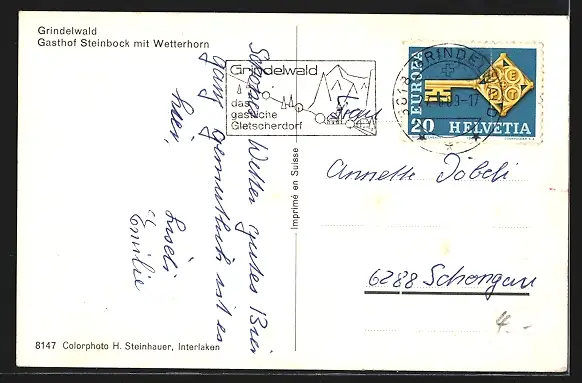 Grindelwald
Gasthof Steinbock mit Wetterhorn
Grindelwald
das
gastliche
Gletscherdorf
3818 GRINDELWALD
EUROPA
CEPT
20 HELVETIA
Schönes Wetter gutes Bier
ganz gemütlich ist es
hier.
Liseli
u. Emilie
Imprimé en Suisse
Frau
Annette Döbeli
6288 Schongau
4.-
8147 Colorphoto H. Steinhauer, Interlaken